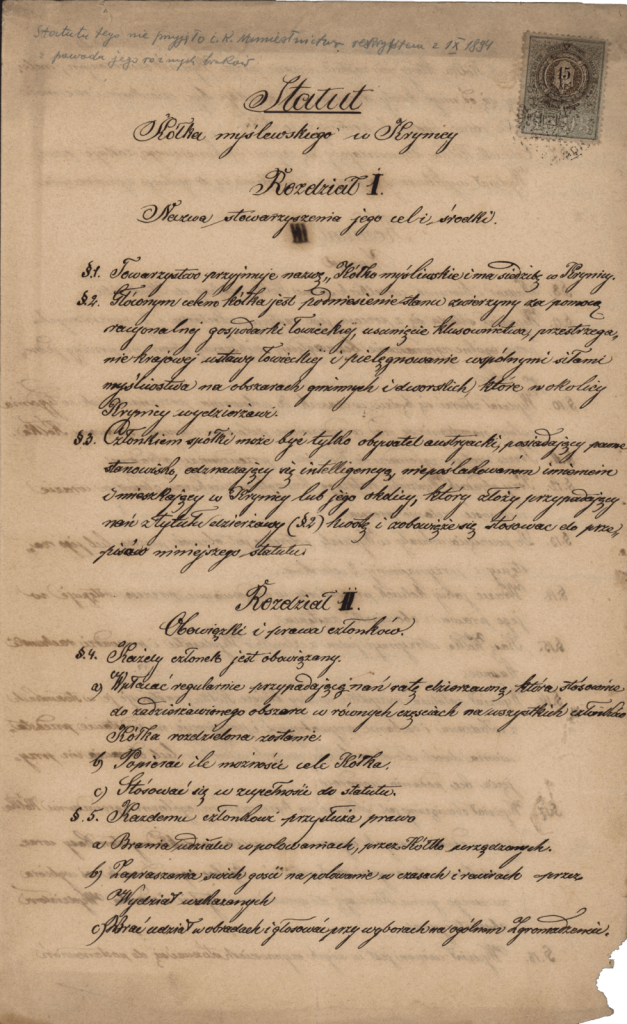 Statutu tego nie przyjęto c.k. Namiestnictwo reskryptem z 1 IX 1894
z powodu jego różnych braków
15
Statut
Kółka myślewskiego w Krynicy
Rozdział I.
Nazwa stowarzyszenia jego cel i środki.
§.1. Towarzystwo przyjmuje nazwę „Kółko myśliwskie i ma siedzibę w Krynicy.
§.2. Głównym celem kółka jest podniesienie stanu zwierzyny za pomocą
racyonalnej gospodarki łowieckiej, usunięcie kłusownictwa, przestrzega-
nie krajowej ustawy łowieckiej i pielęgnowanie wspólnymi siłami
myśliostwa na obszarach gminnych i dworskich, które w okolicy
Krynicy wydzierżawi.
§.3. Członkiem spółki może być tylko obywatel austryacki, posiadający pewne
stanowisko, odznaczający się intelligencyą, nieposzlakowanem imieniem
i mieszkający w Krynicy lub jego okolicy, który złoży przypadającą
nań z tytułu dzierżawy (§2) kwotę i zobowiąże się stosować do prze-
pisów niniejszego statutu.
Rozdział II.
Obowiązki i prawa członków.
§.4. Każdy członek jest obowiązany.
a) Wpłacać regularnie przypadającą nań ratę dzierżawną, która stósownie
do zadzierżawionego obszaru w równych częściach na wszystkich członków
Kółka rozdzielona zostanie.
b) Popierać ile możności cele Kółka.
c) Stósować się w zupełności do statutu.
§.5. Każdemu członkowi przysłuża prawo
a Brania udziału w polowaniach, przez Kółko urządzanych.
b) Zapraszania swich gości na polowanie w czasach i rewirach przez
Wydział wskazanych
c) Brać udział w obradach i głosować przy wyborach na ogólnem Zgromadzeniu.